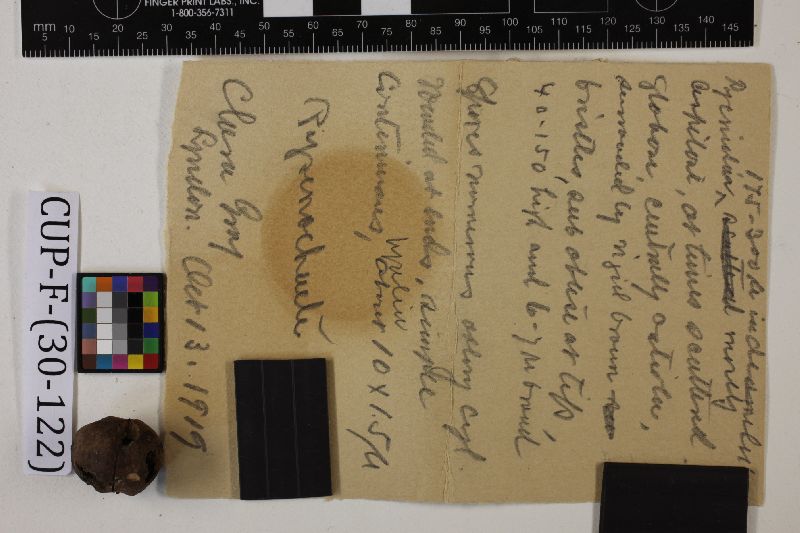 FINGER PRINT LABS., INC.
1-800-356-7311
mm 5 10 15 20 25 30 35 40 45 50 55 60 65 70 75 80 85 90 95 100 105 110 115 120 125 130 135 140 145
CUP-F-(30-122)
Pycnidia,
at times scattered
Globose, centrally
surrounded by rigid brown
bristles, sub obtuse at tip,
40-150 high and 6-7µ broad
Spores numerous oblong cyl.
rounded at ends, simple
Continuous, hyalin
10 x 1.5µ
Pyrenochaeta
Clara
Lyndon. Oct 13. 1919